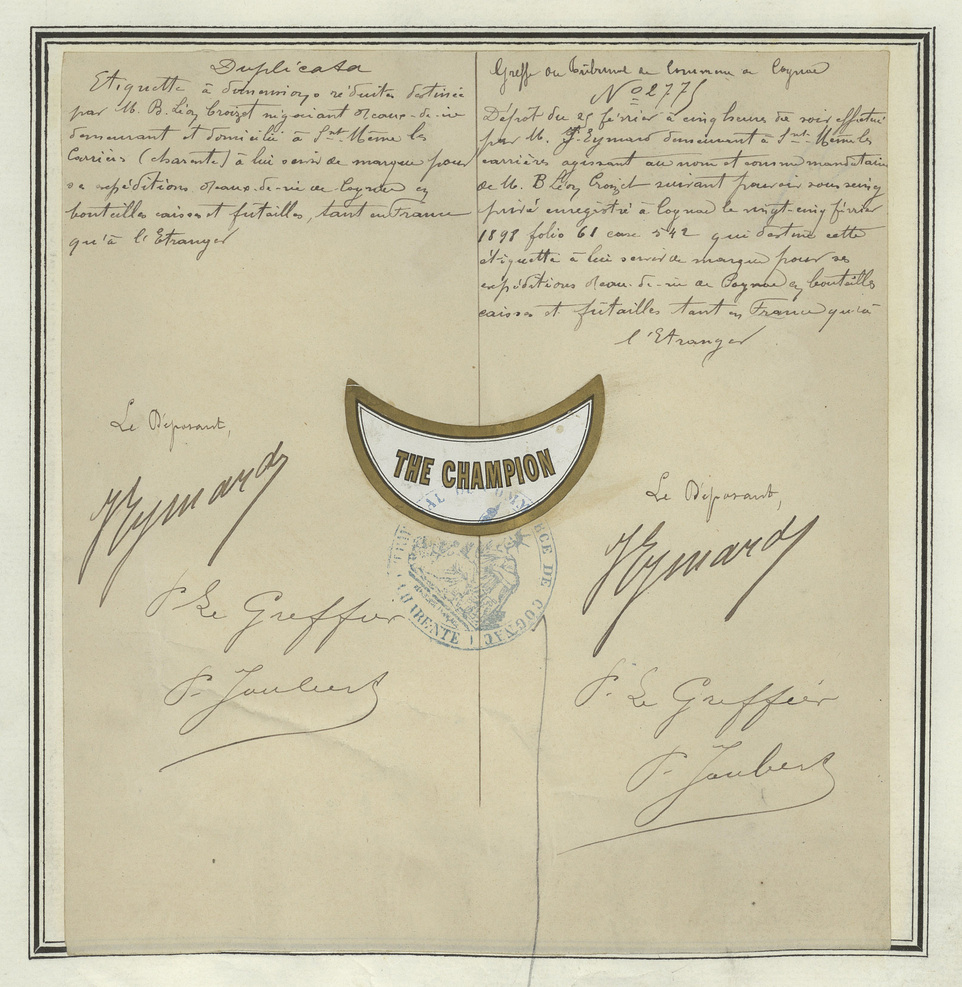 Duplicata
Etiquette à dimensions réduites destinée
par M. B. Léon Croizet négociant d'eaux-de-vie
demeurant et domicilié à Snt Même les
Carrières (charente) à lui servir de marque pour
ses expéditions d'eaux-de-vie de Cognac en
bouteilles caisses et futailles, tant en France
qu'à l'Etranger
Le Déposant,
JEymard
P. Le Greffier
P. Joubert
Greffe du Tribunal de Commerce de Cognac
No 2775
Dépôt du 25 février à cinq heures du soir effectué
par M. J. Eymard demeurant à Snt-Même les
carrières agissant au nom et comme mandataire
de M. B Léon Croizet suivant pouvoir sous seing
privé enregistré à Cognac le vingt-cinq février
1898 folio 61 case 542 qui destine cette
étiquette à lui servir de marque pour ses
expéditions d'eau-de-vie de Cognac en bouteilles
caisses et futailles tant en France qu'à
l'Etranger
THE CHAMPION
TRIBUNAL DE COMMERCE DE COGNAC
CHARENTE
Le Déposant,
JEymard
P. Le Greffier
P. Joubert